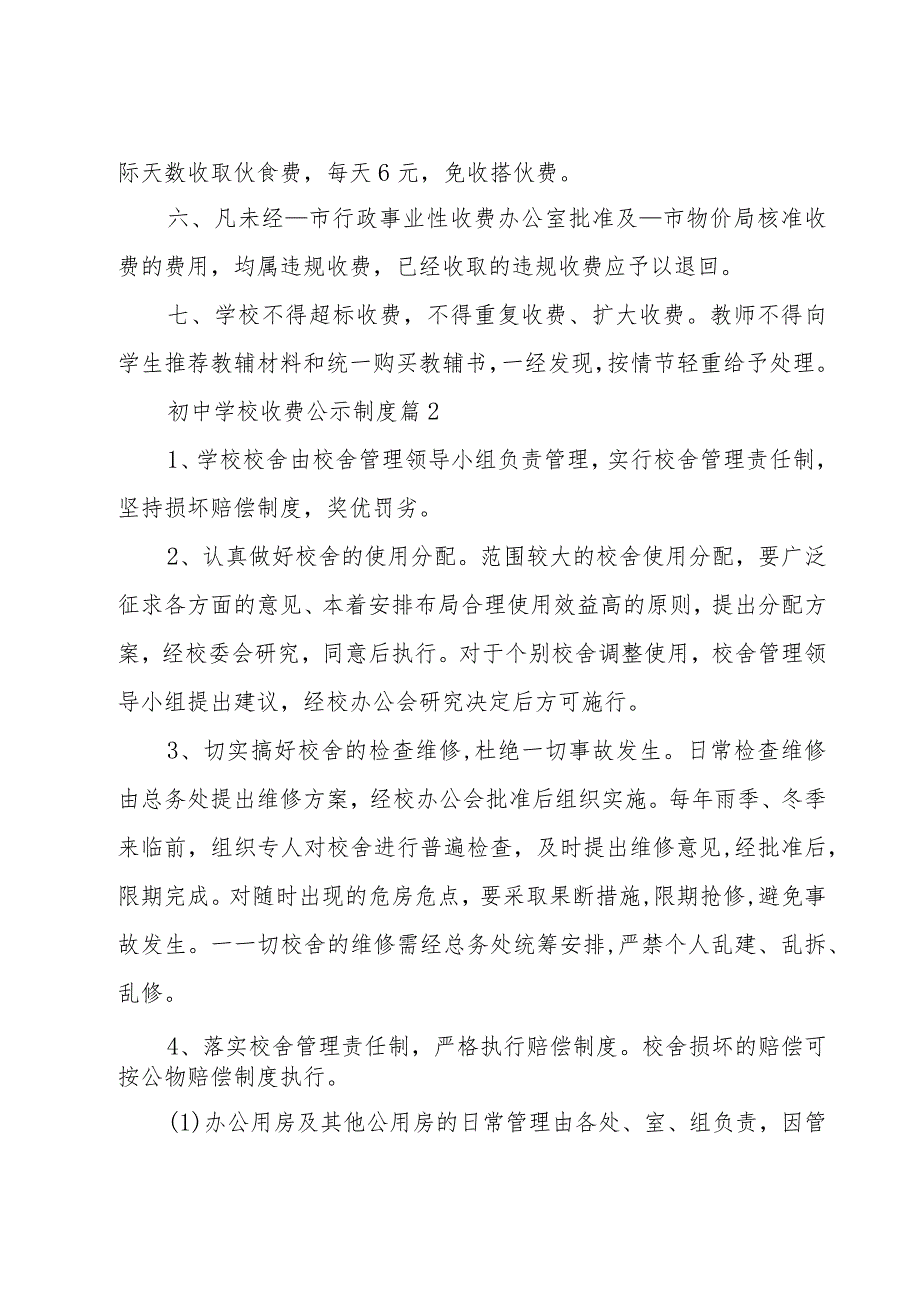 际天数收取伙食费，每天6元，免收搭伙费。
六、凡未经—市行政事业性收费办公室批准及—市物价局核准收
费的费用，均属违规收费，已经收取的违规收费应予以退回。
七、学校不得超标收费，不得重复收费、扩大收费。教师不得向
学生推荐教辅材料和统一购买教辅书,一经发现,按情节轻重给予处理。
初中学校收费公示制度篇2
1、学校校舍由校舍管理领导小组负责管理,实行校舍管理责任制，
坚持损坏赔偿制度，奖优罚劣。
2、认真做好校舍的使用分配。范围较大的校舍使用分配，要广泛
征求各方面的意见、本着安排布局合理使用效益高的原则，提出分配方
案，经校委会研究，同意后执行。对于个别校舍调整使用，校舍管理领
导小组提出建议，经校办公会研究决定后方可施行。
3、切实搞好校舍的检查维修,杜绝一切事故发生。日常检查维修
由总务处提出维修方案，经校办公会批准后组织实施。每年雨季、冬季
来临前，组织专人对校舍进行普遍检查，及时提出维修意见,经批准后，
限期完成。对随时出现的危房危点，要采取果断措施,限期抢修,避免事
故发生。一一切校舍的维修需经总务处统筹安排,严禁个人乱建、乱拆、
乱修。
4、落实校舍管理责任制，严格执行赔偿制度。校舍损坏的赔偿可
按公物赔偿制度执行。
(1)办公用房及其他公用房的日常管理由各处、室、组负责，因管